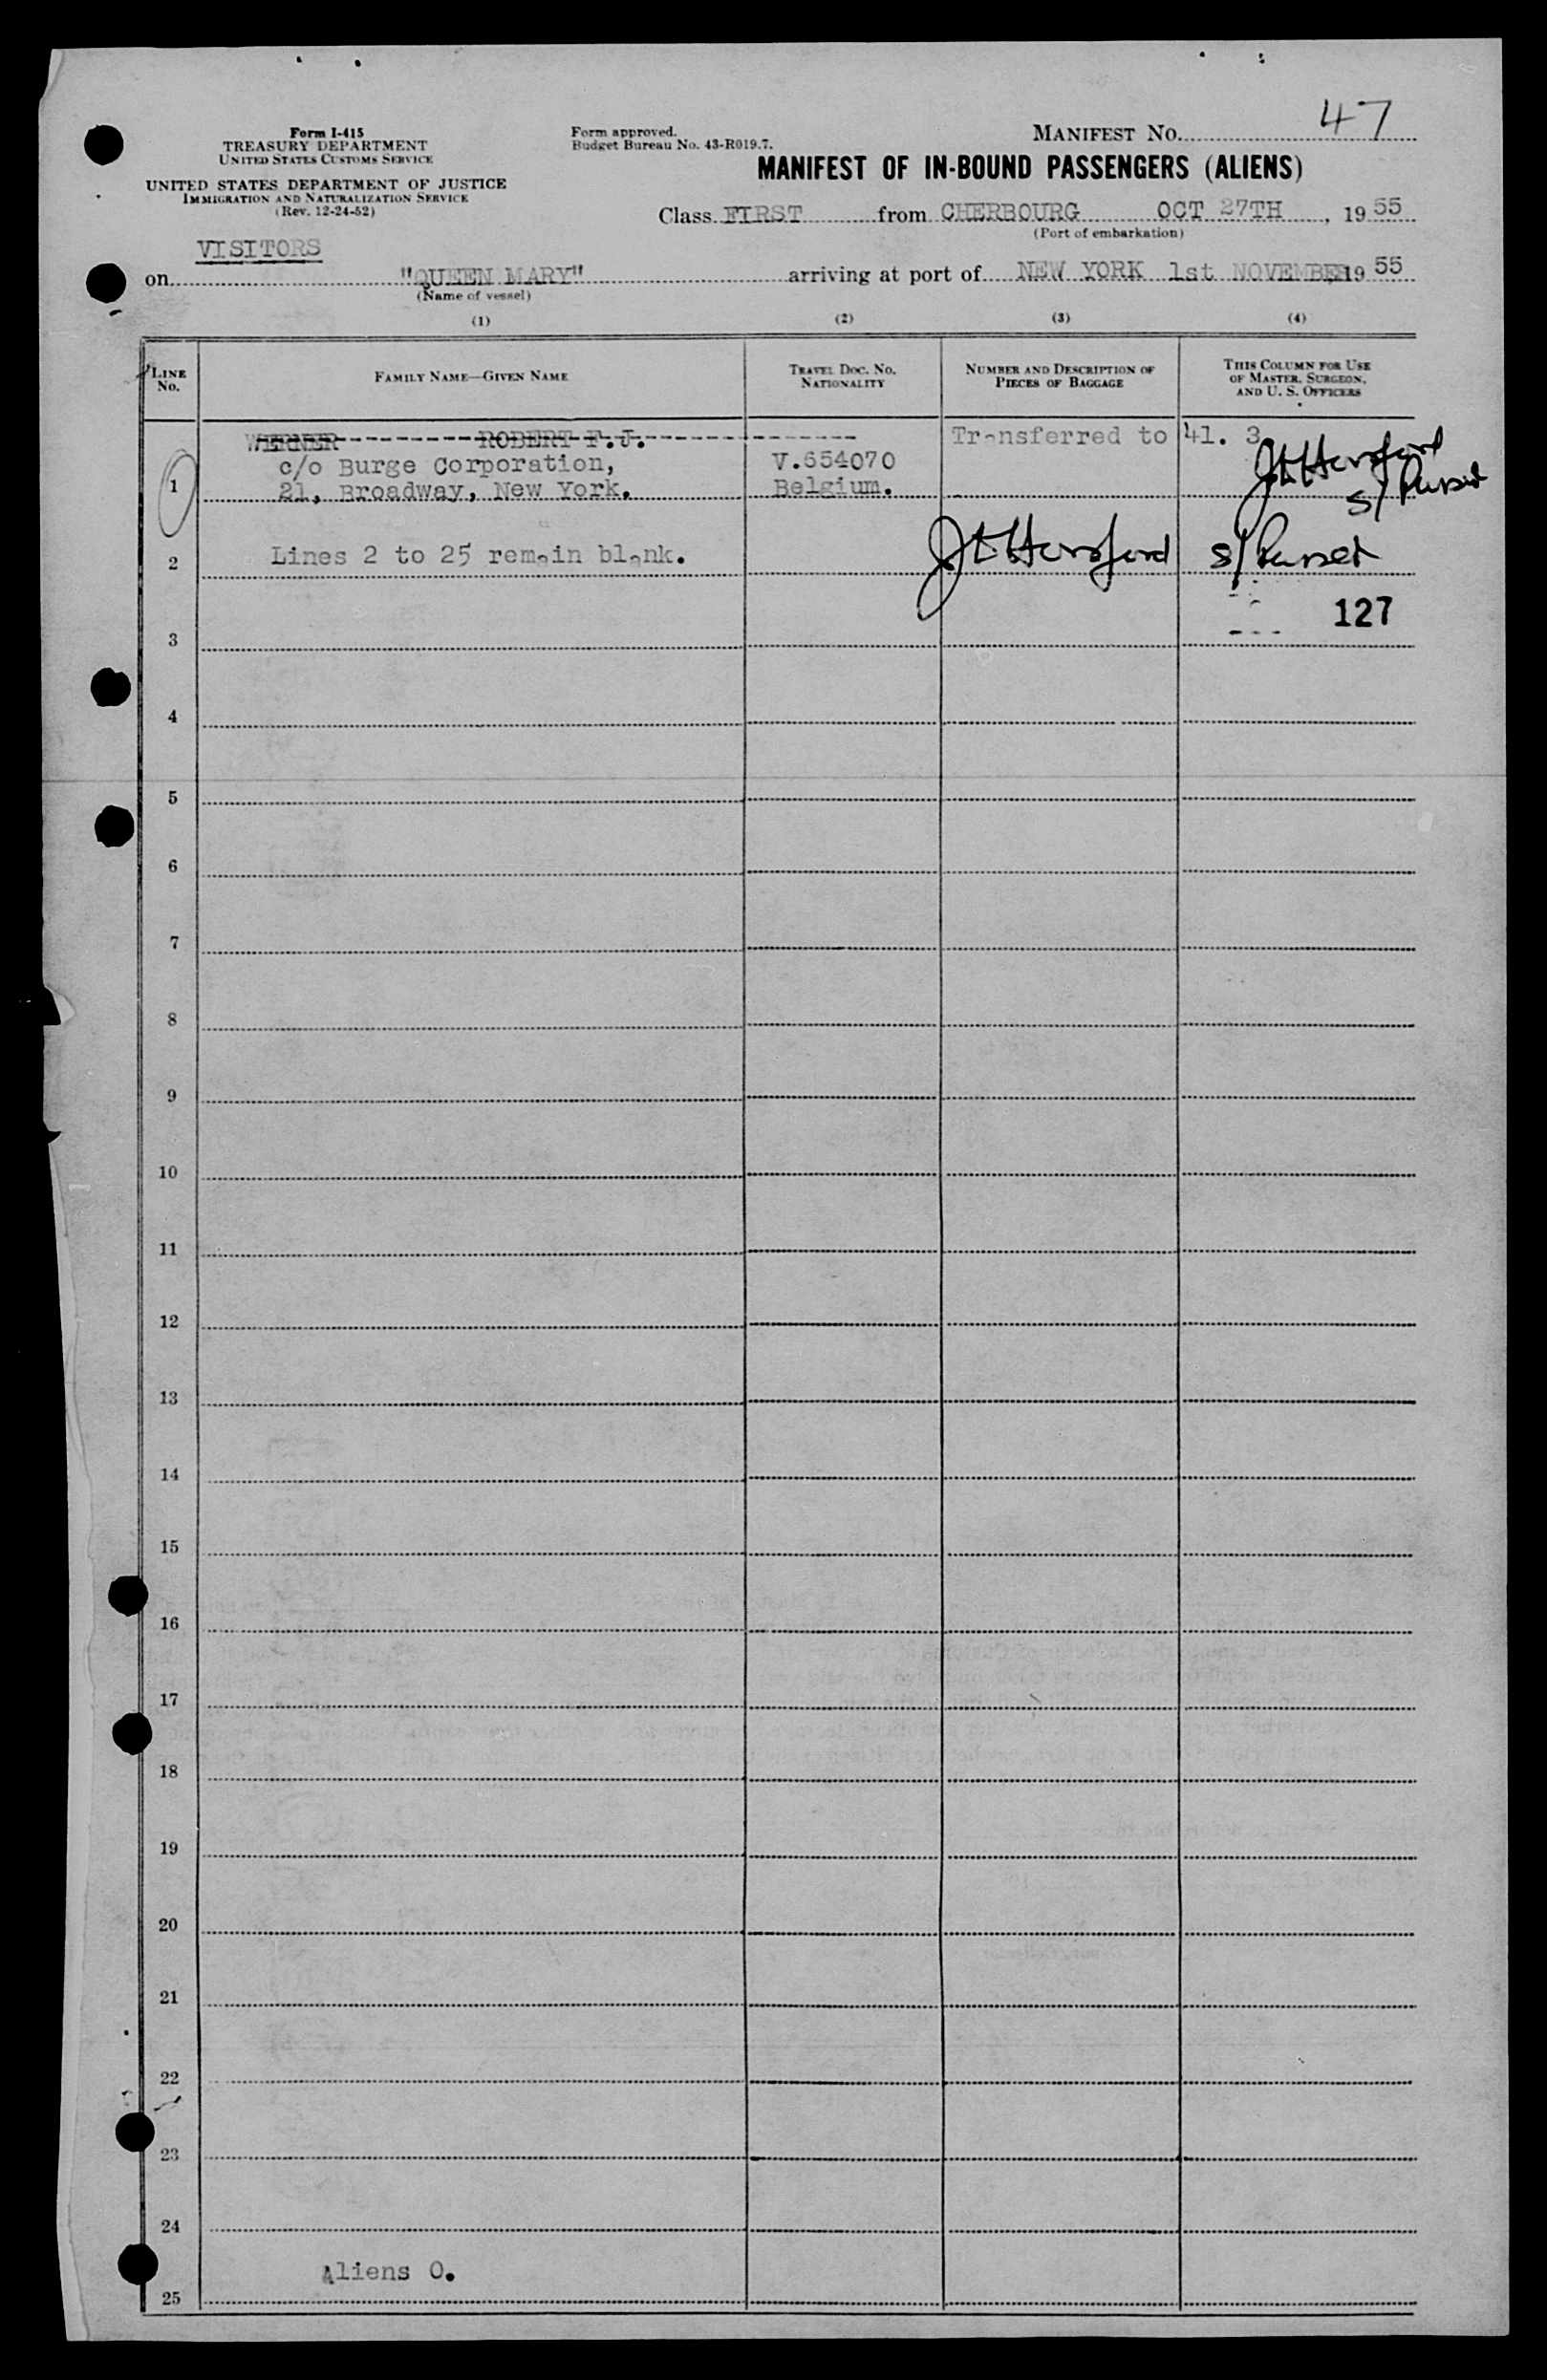 Form I-415
TREASURY DEPARTMENT
UNITED STATES CUSTOMS SERVICE
UNITED STATES DEPARTMENT OF JUSTICE
IMMIGRATION AND NATURALIZATION SERVICE
(Rev. 12-24-52)
Form approved.
Budget Bureau No. 43-R019.7.
MANIFEST NO. 47
MANIFEST OF IN-BOUND PASSENGERS (ALIENS)
Class FIRST from CHERBOURG OCT 27TH, 19 55
(Port of embarkation)
VISITORS
on "QUEEN MARY" arriving at port of NEW YORK 1st NOVEMBER 19 55
(Name of vessel)
(1) (2) (3) (4)
LINE NO.
FAMILY NAME—GIVEN NAME
TRAVEL DOC. NO. NATIONALITY
NUMBER AND DESCRIPTION OF PIECES OF BAGGAGE
THIS COLUMN FOR USE OF MASTER, SURGEON, AND U. S. OFFICERS
WERNER ROBERT F.J. Transferred to 41. 3
c/o Burge Corporation, V.654070
1 21, Broadway, New York. Belgium.
2 Lines 2 to 25 remain blank.
127
3
4
5
6
7
8
9
10
11
12
13
14
15
16
17
18
19
20
21
22
23
24
Aliens 0.
25